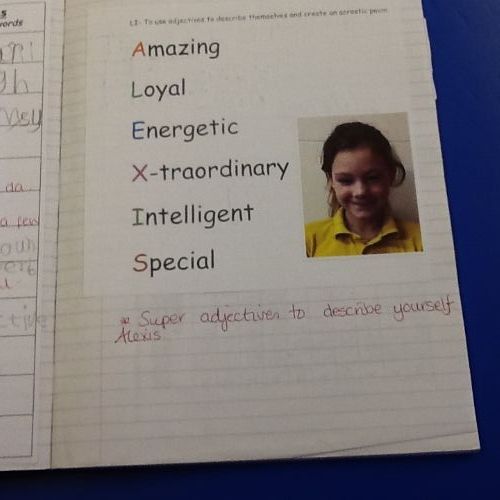 L.I- To use adjectives to describe themselves and create an acrostic poem
Amazing
Loyal
Energetic
X-traordinary
Intelligent
Special
* Super adjectives to describe yourself
Alexis